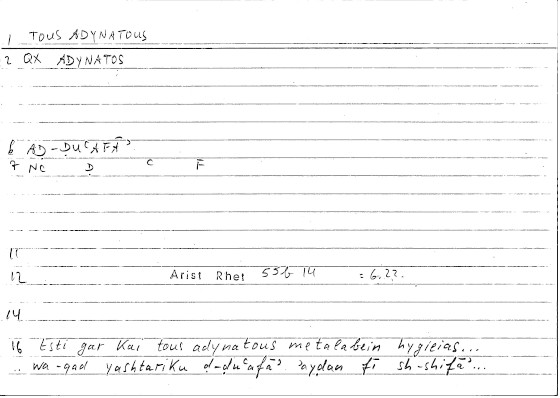 1 TOUS ADYNATOUS
2 QX ADYNATOS
6 AḌ-ḌUʿAFĀʾ
7 NC Ḍ C F
11
12 Arist Rhet 55b 14 = 6.22.
14
16 Esti gar kai tous adynatous metalabein hygieias...
.. wa-qad yashtariku ḍ-ḍuʿafāʾ ʾayḍan fī sh-shifāʾ...